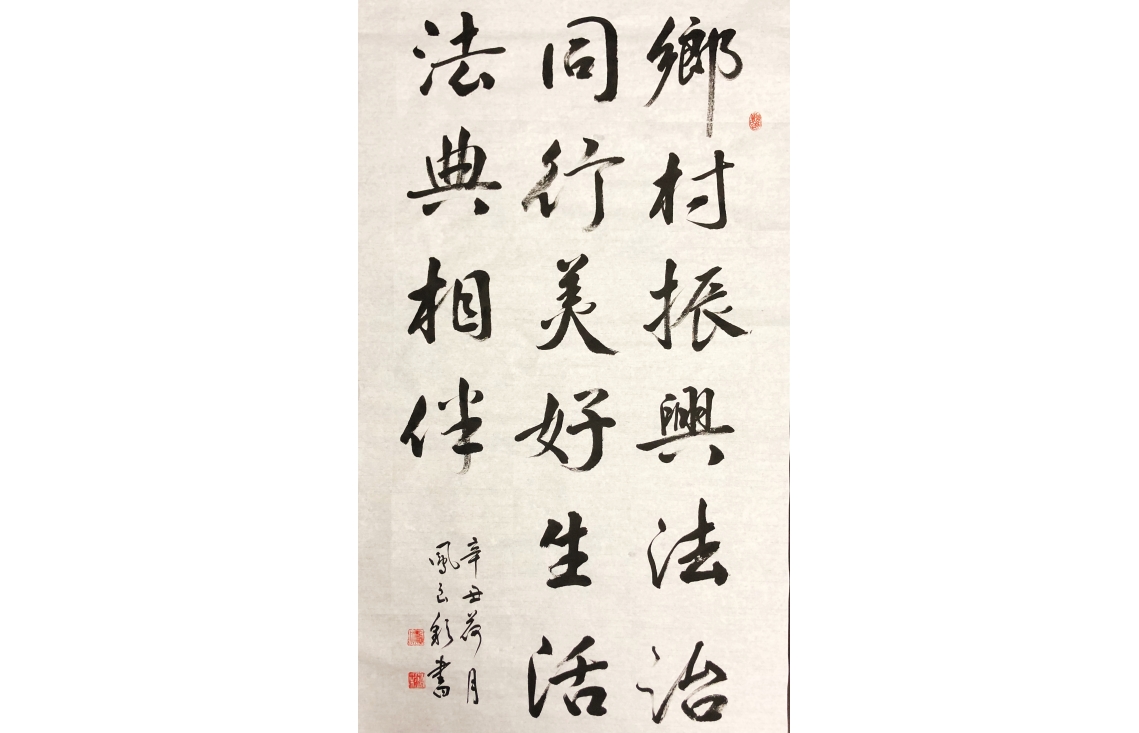 鄉村振興法治
同行美好生活
法典相伴
辛丑荷月
鳳彩書